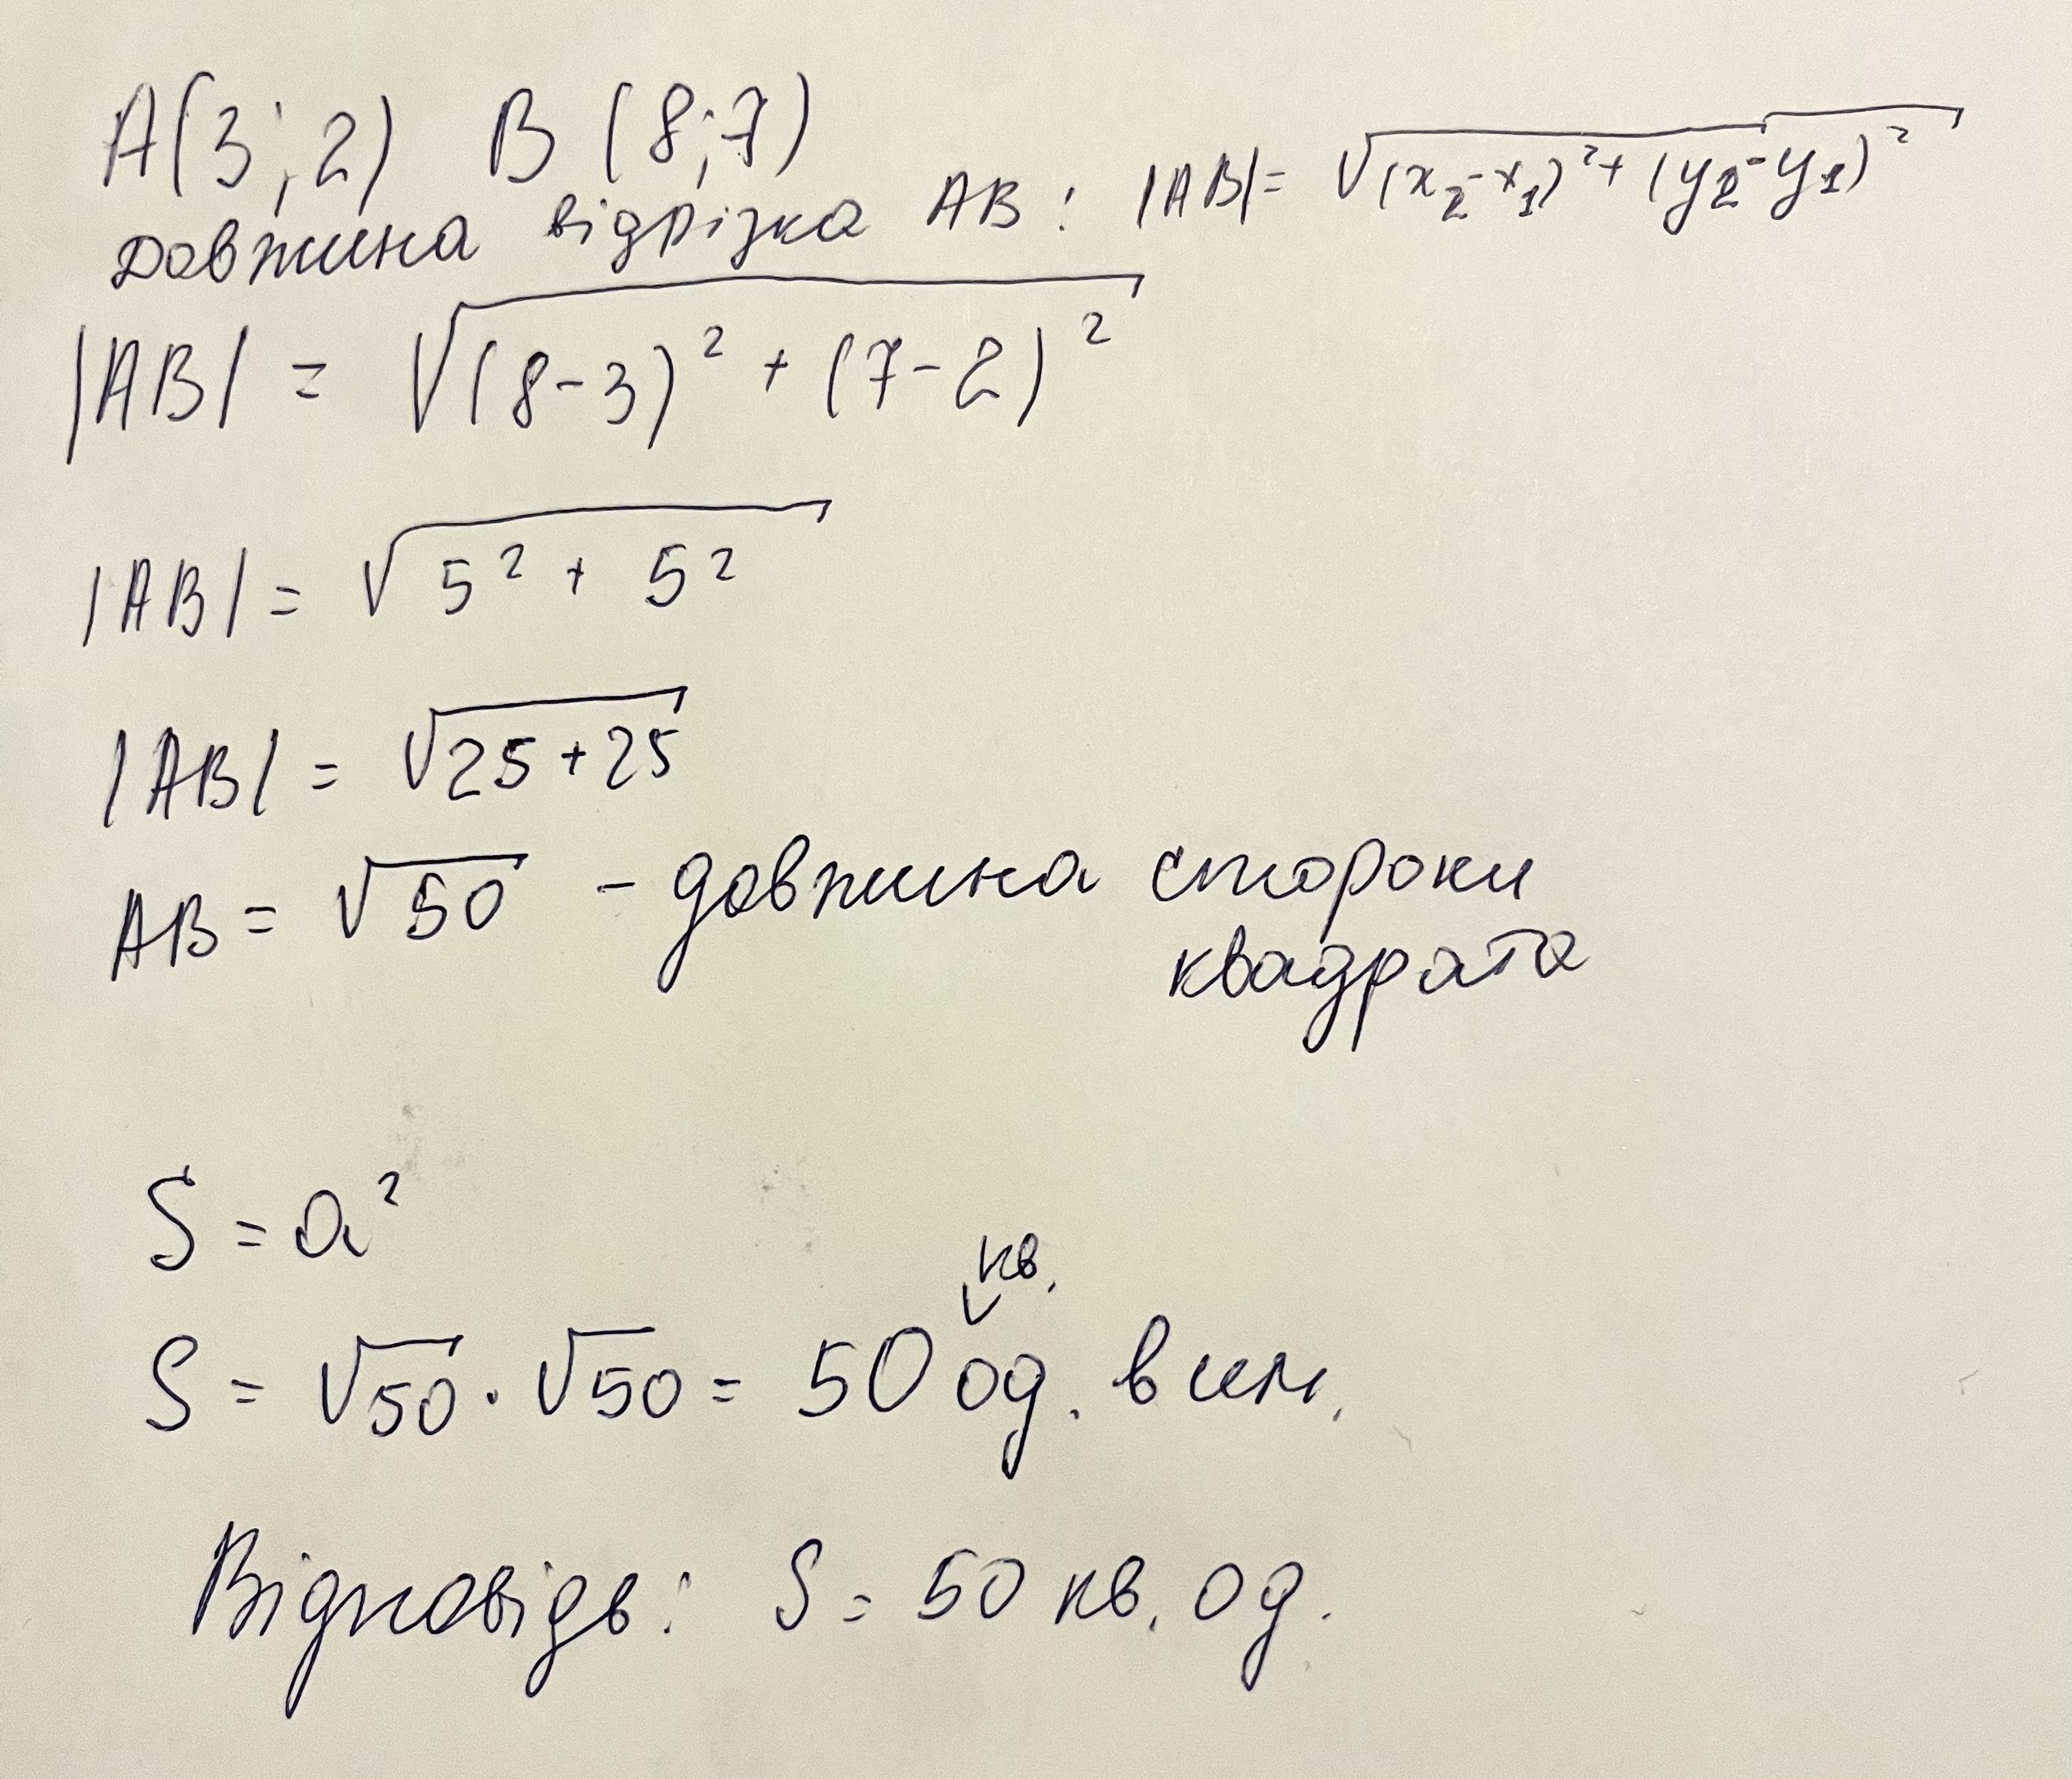 A(3; 2) B (8; 7)
Довжина відрізка AB: |AB| = √(x₂-x₁)² + (y₂-y₁)²
|AB| = √(8-3)² + (7-2)²
|AB| = √5² + 5²
|AB| = √25+25
AB = √50 - довжина сторони
квадрата
S = a²
кв.
S = √50 · √50 = 50 од. вим.
Відповідь: S = 50 кв. од.